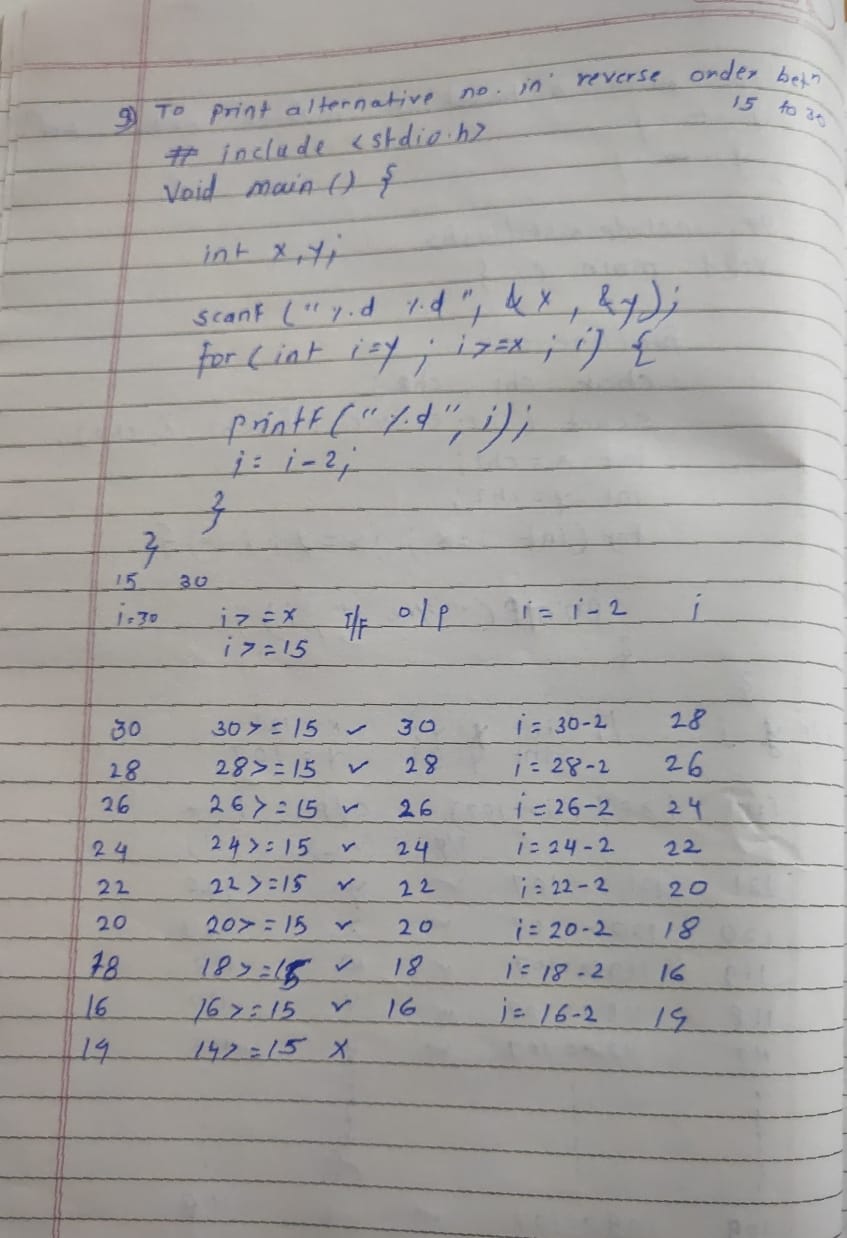 9) To print alternative no. in reverse order betn
15 to 30
# include <stdio.h>
Void main () {
int x,y;
scanf ("%d %d", &x, &y);
for (int i=y; i>=x; i) {
printf ("%d", i);
i= i-2;
}
}
15 30
i=30 i>=x T/F o/p i= i-2 i
i>=15
30 30>=15 ✓ 30 i= 30-2 28
28 28>=15 ✓ 28 i= 28-2 26
26 26>=15 ✓ 26 i=26-2 24
24 24>=15 ✓ 24 i=24-2 22
22 22>=15 ✓ 22 i=22-2 20
20 20>=15 ✓ 20 i=20-2 18
18 18>=15 ✓ 18 i=18-2 16
16 16>=15 ✓ 16 i= 16-2 14
14 14>=15 x